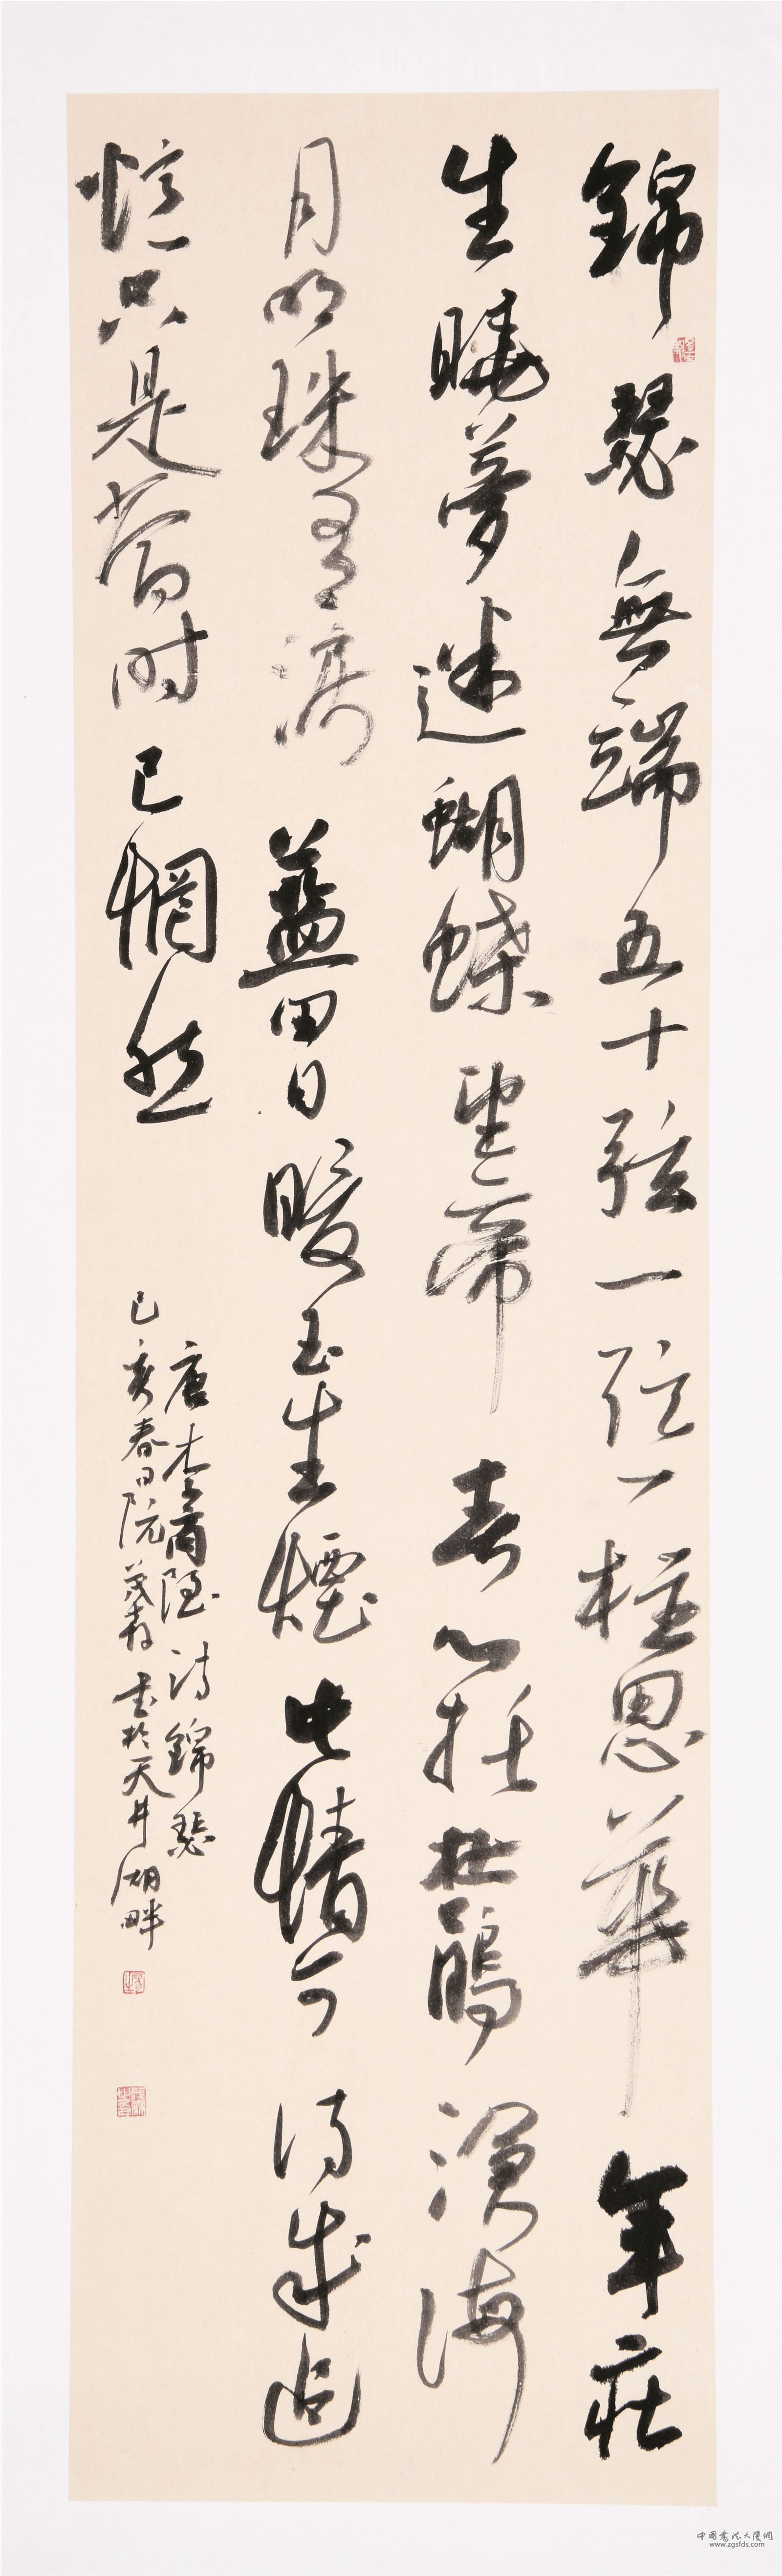 錦瑟無端五十弦一弦一柱思華年莊
生曉夢迷蝴蝶望帝春心托杜鵑滄海
月明珠有淚藍田日暖玉生煙此情可待成追
憶只是當时已惘然
唐李商隐詩錦瑟
己亥春日阮茂林書於天井湖畔
中国書法大厦網
www.zgsfds.com